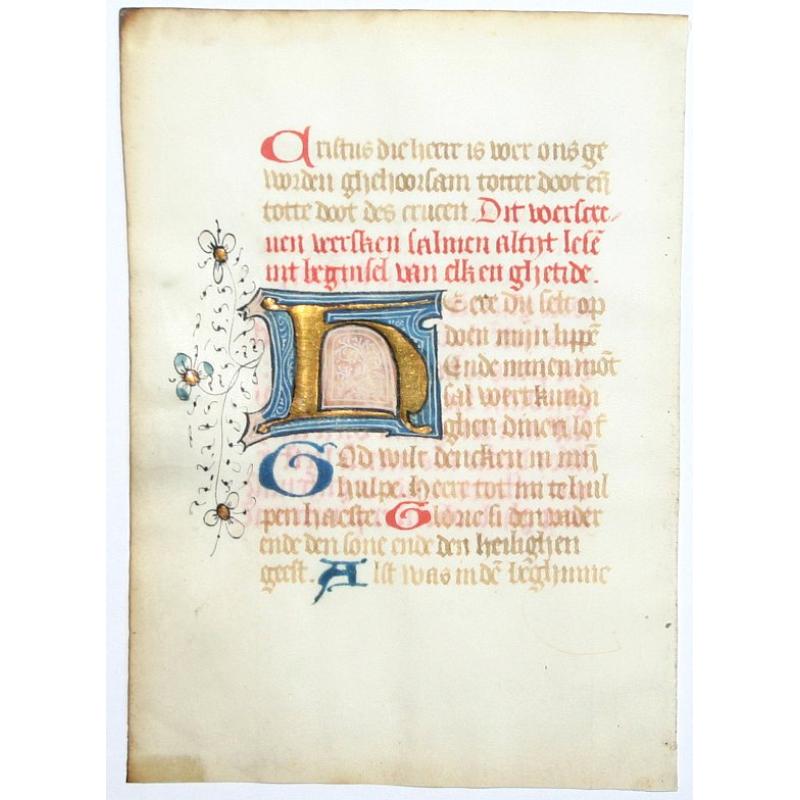 Cristus die heere is voer ons ge
worden ghehoorsam totter doot en̄
totte doot des crucen. Dit voerscre-
uen versken salmen altijt lesē
int beginsel van elken ghetide.
Heere du selt op
doen mijn lippē
Ende minen mōt
sal vertkundi
ghen dinen lof
God wilt dencken in mijn̄
hulpe. Heere tot mi te hul
pen haeste. Glorie si den vader
ende den sone ende den heilighen
geest. Alst was in dē beghinne